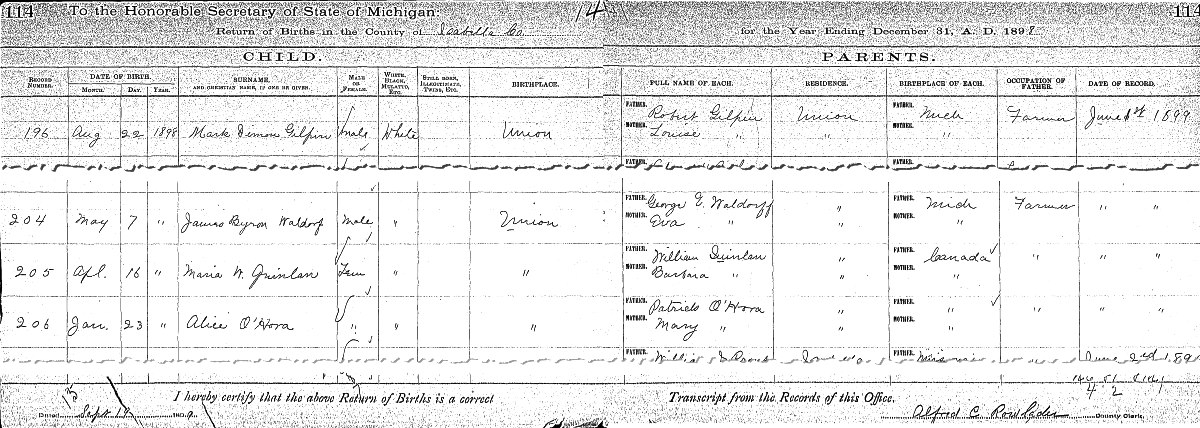 114 To the Honorable Secretary of State of Michigan: 14 114
Return of Births in the County of Isabella Co. for the Year Ending December 31, A. D. 1898
CHILD. PARENTS.
RECORD NUMBER. DATE OF BIRTH. MONTH. DAY. YEAR. SURNAME, AND CHRISTIAN NAME, IF ONE BE GIVEN. MALE OR FEMALE. WHITE, BLACK, MULATTO, ETC. STILL BORN, ILLEGITIMATE, TWINS, ETC. BIRTHPLACE. FULL NAME OF EACH. RESIDENCE. BIRTHPLACE OF EACH. OCCUPATION OF FATHER. DATE OF RECORD.
FATHER. Robert Gilpin Union FATHER. Mich Farmer June 1st 1899
196 Aug 22 1898 Mark Simon Gilpin male White Union MOTHER. Louise " " MOTHER. "
FATHER. FATHER.
FATHER. George E. Waldorff " FATHER. Mich Farmer " "
204 May 7 " James Byron Waldorf Male " Union MOTHER. Eva " " MOTHER. "
FATHER. William Quinlan " FATHER. Canada " " "
205 Apl. 16 " Maria W. Quinlan Fem " " MOTHER. Barbara " " MOTHER. "
FATHER. Patrick O'Hora " FATHER. " " " "
206 Jan. 23 " Alice O'Hora " " " MOTHER. Mary " " MOTHER. "
FATHER. FATHER. June 2nd 189
I hereby certify that the above Return of Births is a correct Transcript from the Records of this Office.
Dated Sept 12 Alfred C. Rowlader County Clerk.